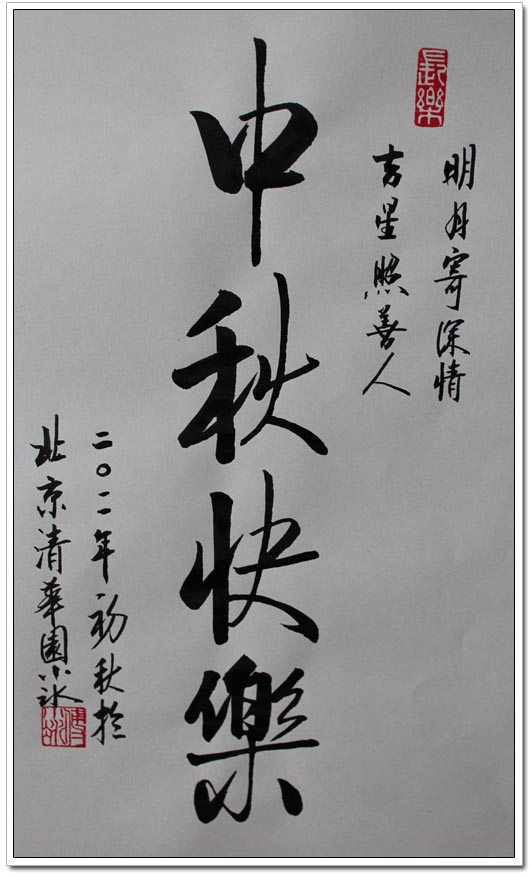 長樂
明月寄深情
吉星照善人
中秋快樂
二〇一一年初秋於
北京清華園小冰